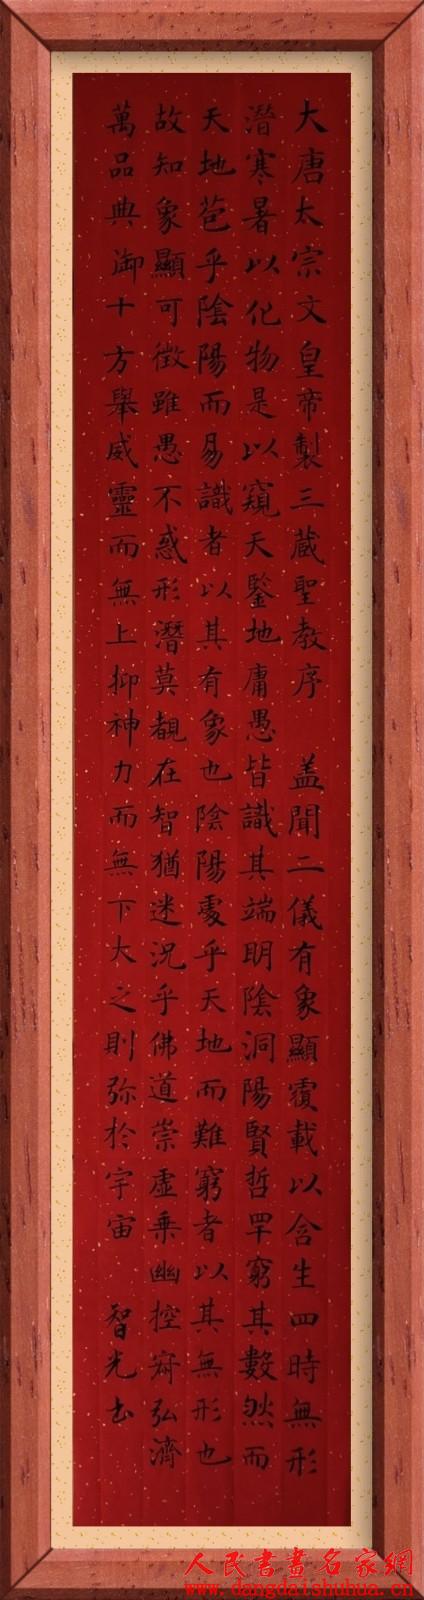 大唐太宗文皇帝製三蔵聖教序 盖聞二儀有象顯覆載以含生四時無形
潛寒暑以化物是以窺天鑒地庸愚皆識其端明陰洞陽賢哲罕窮其數然而
天地苞乎陰陽而易識者以其有象也陰陽處乎天地而難窮者以其無形也
故知象顯可徵雖愚不惑形潛莫覩在智猶迷況乎佛道崇虛乗幽控寂弘濟
萬品典御十方舉威靈而無上抑神力而無下大之則弥於宇宙 智光书
人民書畫名家網
www.dangdaishuhua.cn